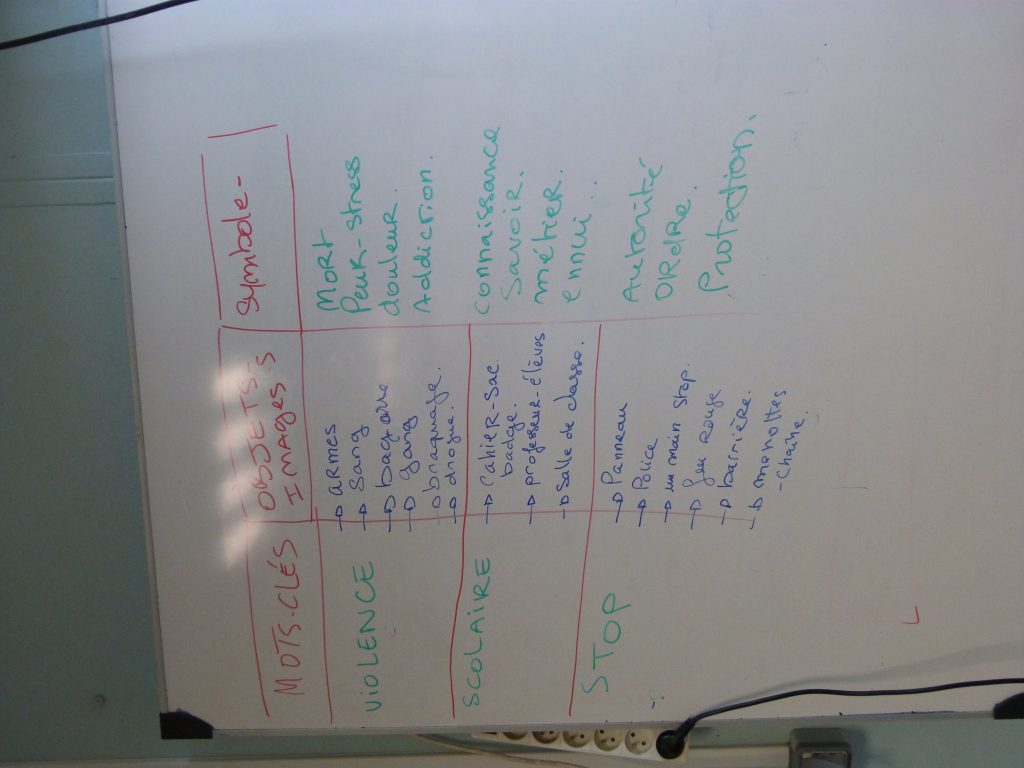 MOTS-CLÉS
OBJETS-
IMAGES S
Symbole-
VIOLENCE
→ ARMES
→ Sang
→ bagarre
→ Gang
→ braquage.
→ drogue.
MORT
Peur-stress
douleur.
Addiction.
SCOLAIRE
→ Cahier-Sac
badge.
→ professeur-élèves
→ salle de classe.
Connaissance
Savoir.
métier.
ennui.
STOP
→ Panneau
→ Police
→ un main stop.
→ feu Rouge
→ barrière.
→ menottes
-Chaîne.
Autorité
ORdRe.
Protection.